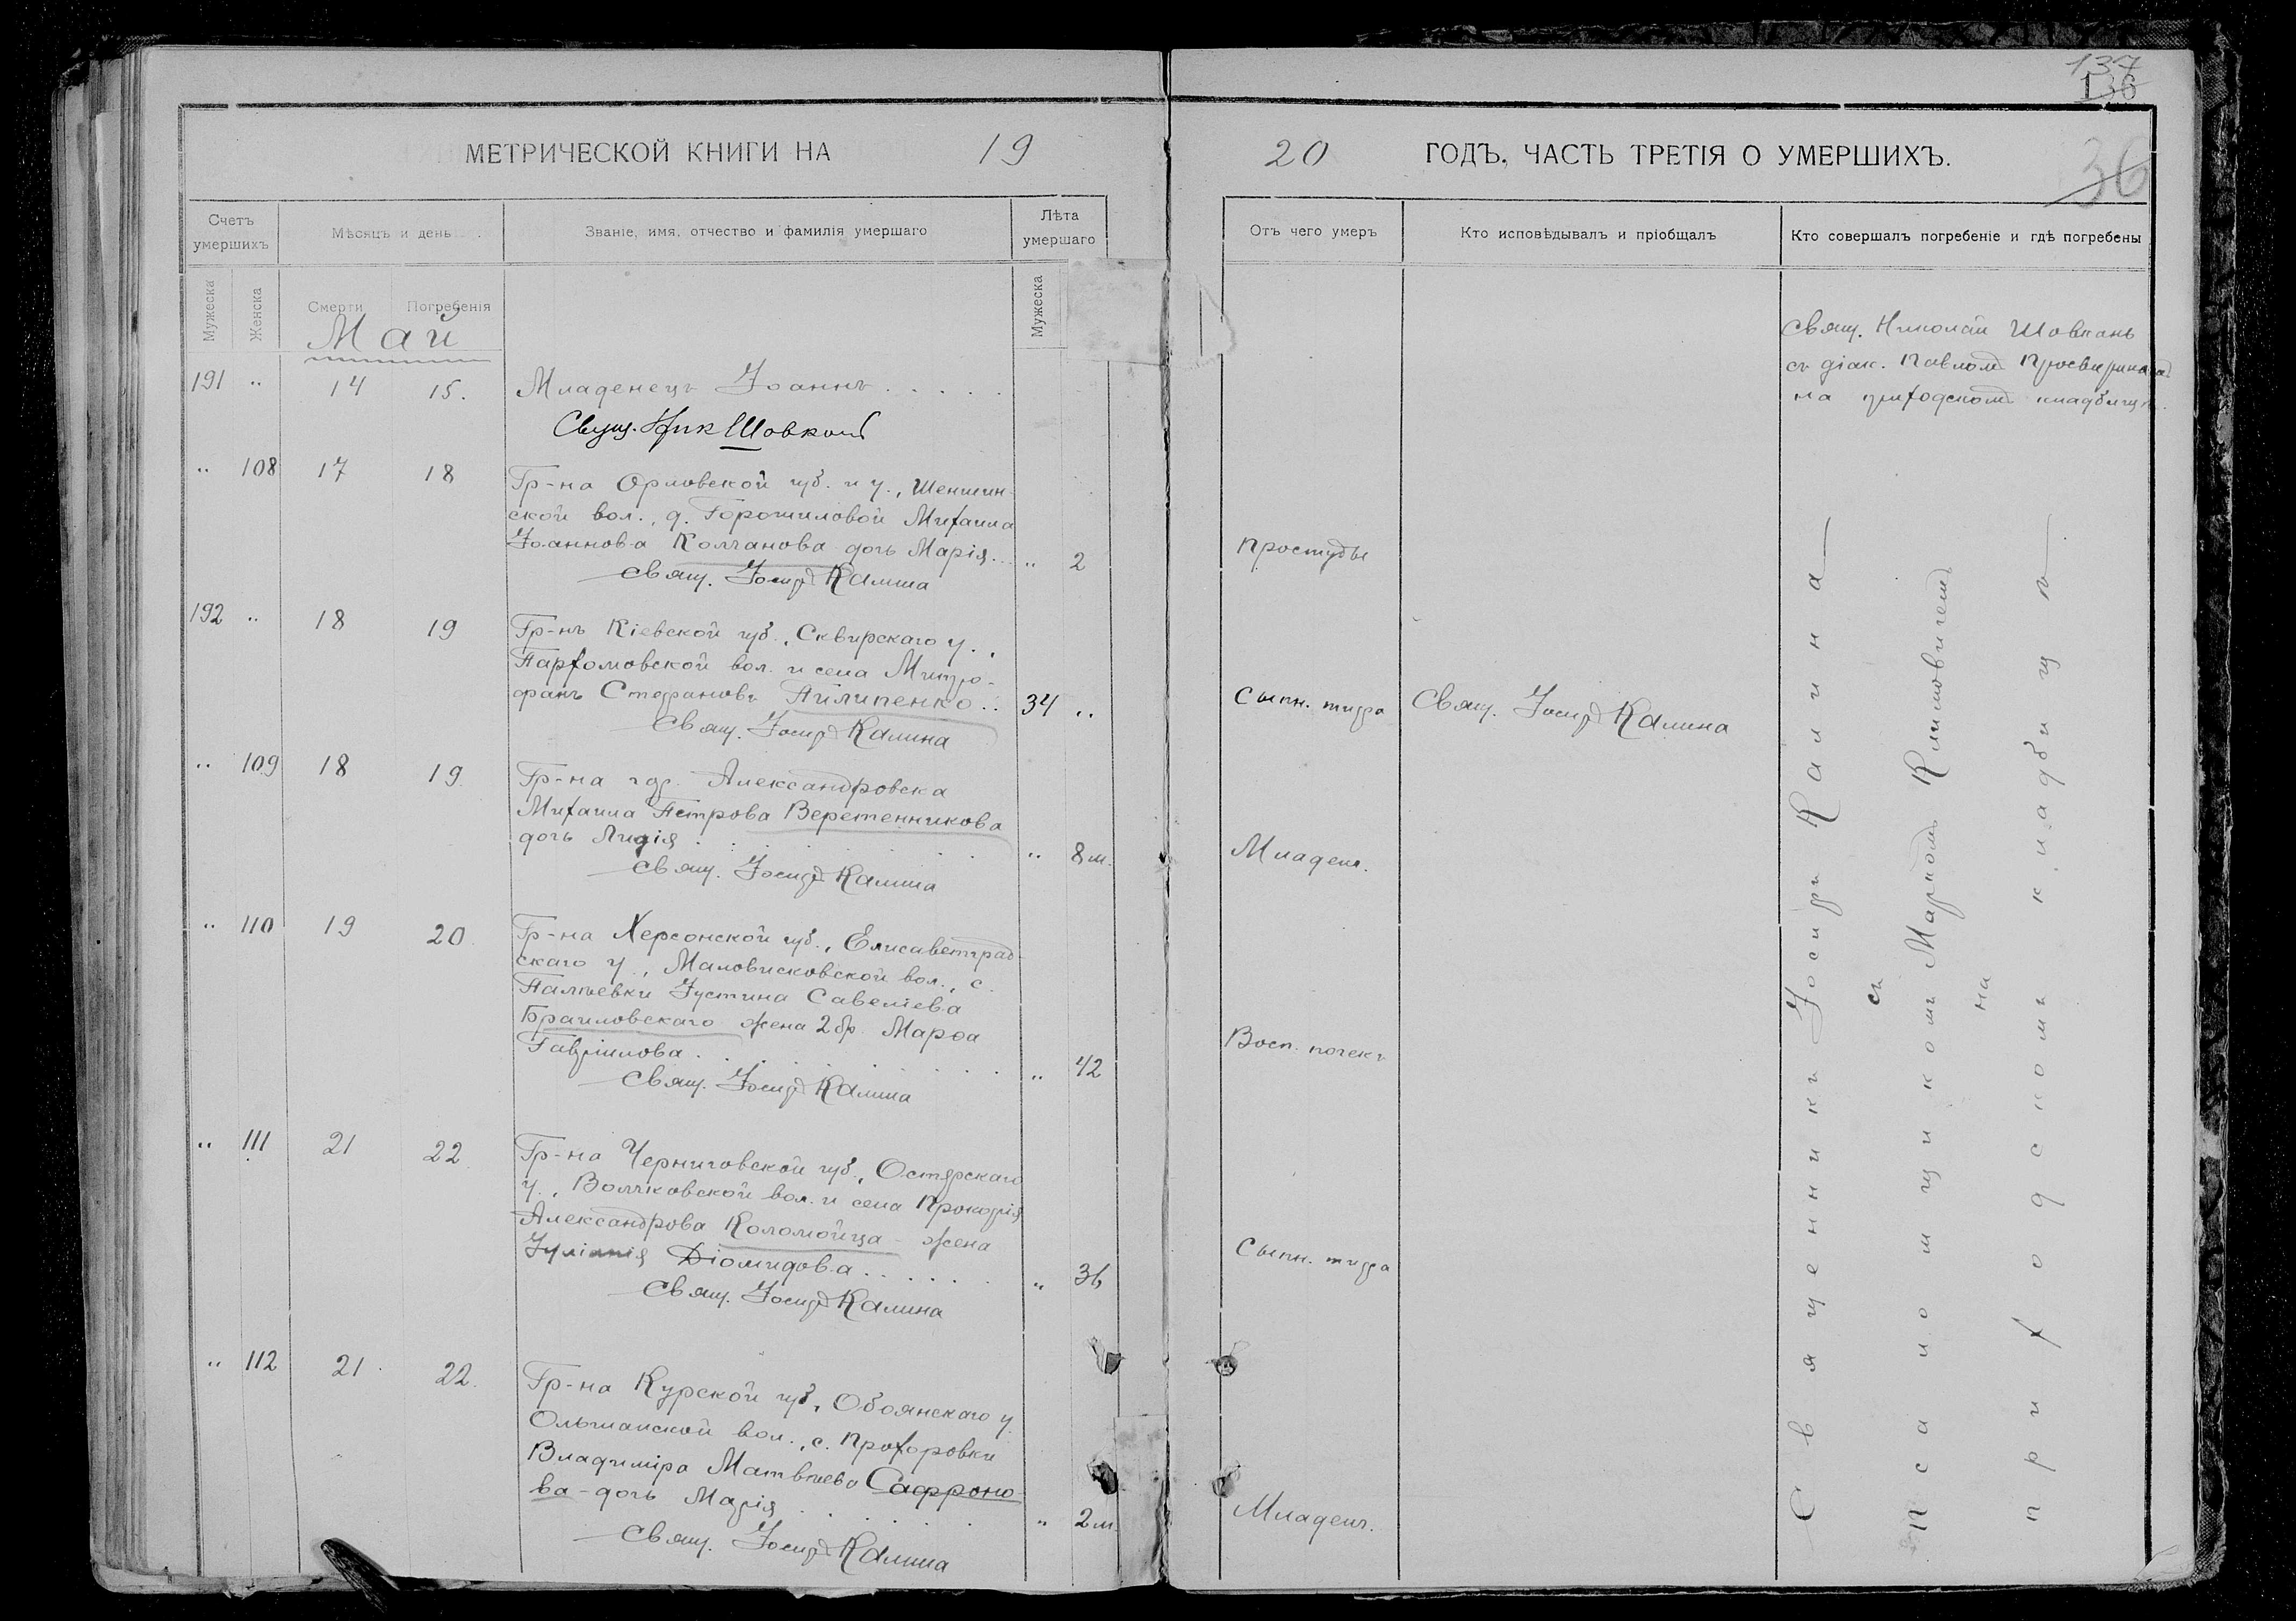 137
136
36
МЕТРИЧЕСКОЙ КНИГИ НА 19
20 ГОДЪ, ЧАСТЬ ТРЕТІЯ О УМЕРШИХЪ.
Счетъ умершихъ
Мѣсяцъ и день
Званіе, имя, отчество и фамилія умершаго
Лѣта умершаго
Отъ чего умеръ
Кто исповѣдывалъ и пріобщалъ
Кто совершалъ погребеніе и гдѣ погребены
Мужеска
Женска
Смерти
Погребенія
Мужеска
Май
191 „ 14 15. Младенецъ Іоаннъ . . . . .
Свящ. Ник Шовкань
Свящ. Николай Шовкань
съ діак. Павломъ
на приходскомъ кладбищѣ.
„ 108 17 18 Гр-на Орловской губ. и у., Шеншин-
ской вол., д. Горошиловой Михаила
Іоаннова Колчанова дочь Марія... „ 2 Простуды
Свящ. Іосифъ Калина
192 „ 18 19 Гр-нъ Кіевской губ., Сквирскаго у.,
Пархомовской вол. и села Митро-
фанъ Стефановъ Пилипенко.. 34 „ Сыпн. тифа Свящ. Іосифъ Калина
Свящ. Іосифъ Калина
„ 109 18 19. Гр-на гор. Александровска
Михаила Петрова Веретенникова
дочь Лидія . . . . . . . „ 8 м. Младенч.
Свящ. Іосифъ Калина
„ 110 19 20. Гр-на Херсонской губ., Елисаветград-
скаго у., Маловисковской вол., с.
Паліевки Іустина Савеліева
Браиловскаго жена 2 бр. Марѳа
Гавріилова . . . . . . . . „ 42 Восп. почекъ
Свящ. Іосифъ Калина
„ 111 21 22. Гр-на Черниговской губ., Остерскаго
у., Волчковской вол. и села Прокофія
Александрова Коломойца - жена
Іуліанія Діомидова . . . . . . „ 36 Сыпн. тифа
Свящ. Іосифъ Калина
„ 112 21. 22. Гр-на Курской губ., Обоянскаго у.
Ольшанской вол., с. Прохоровки
Владиміра Матвѣева Сафроно-
ва - дочь Марія . . . . . . „ 2 м. Младенч.
Свящ. Іосифъ Калина
Священникъ Іосифъ Калина
съ
псаломщикомъ Маркомъ Климовичемъ
на
приходскомъ кладбищѣ.